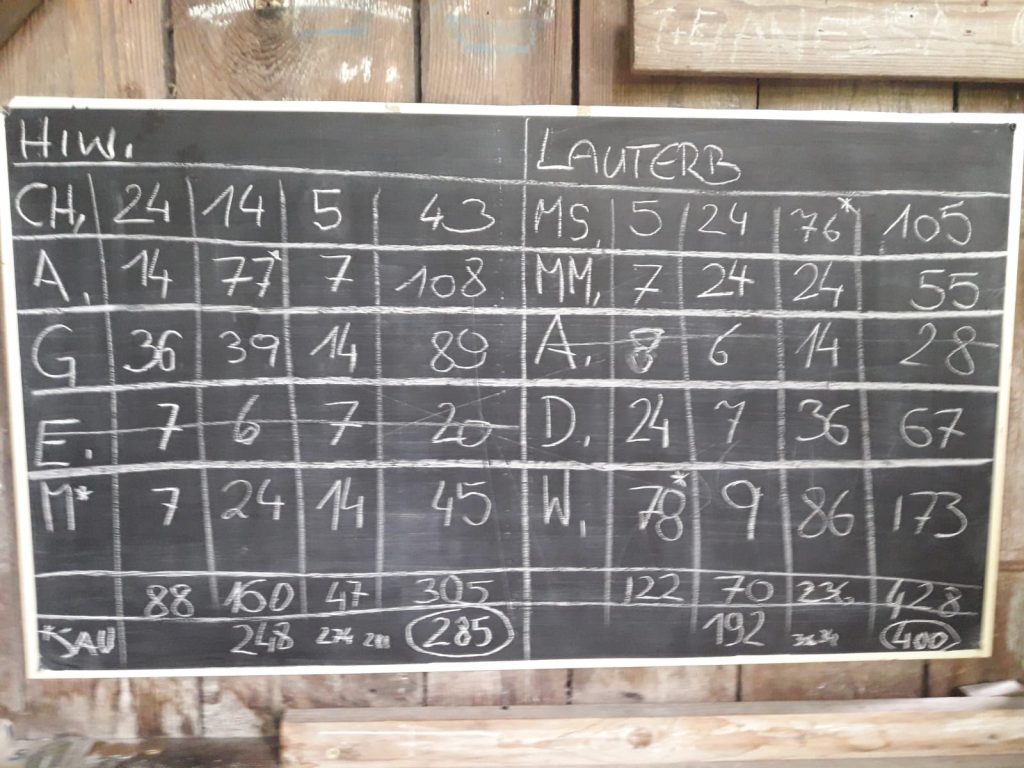 HIW. LAUTERB
CH, 24 14 5 43 MS, 5 24 76* 105
A, 14 77* 7 108 MM, 7 24 24 55
G 36 39 14 89 A, 8 6 14 28
E. 7 6 7 20 D, 24 7 36 67
M* 7 24 14 45 W, 78* 9 86 173
88 160 47 305 122 70 236 428
*SAU 248 285 192 400